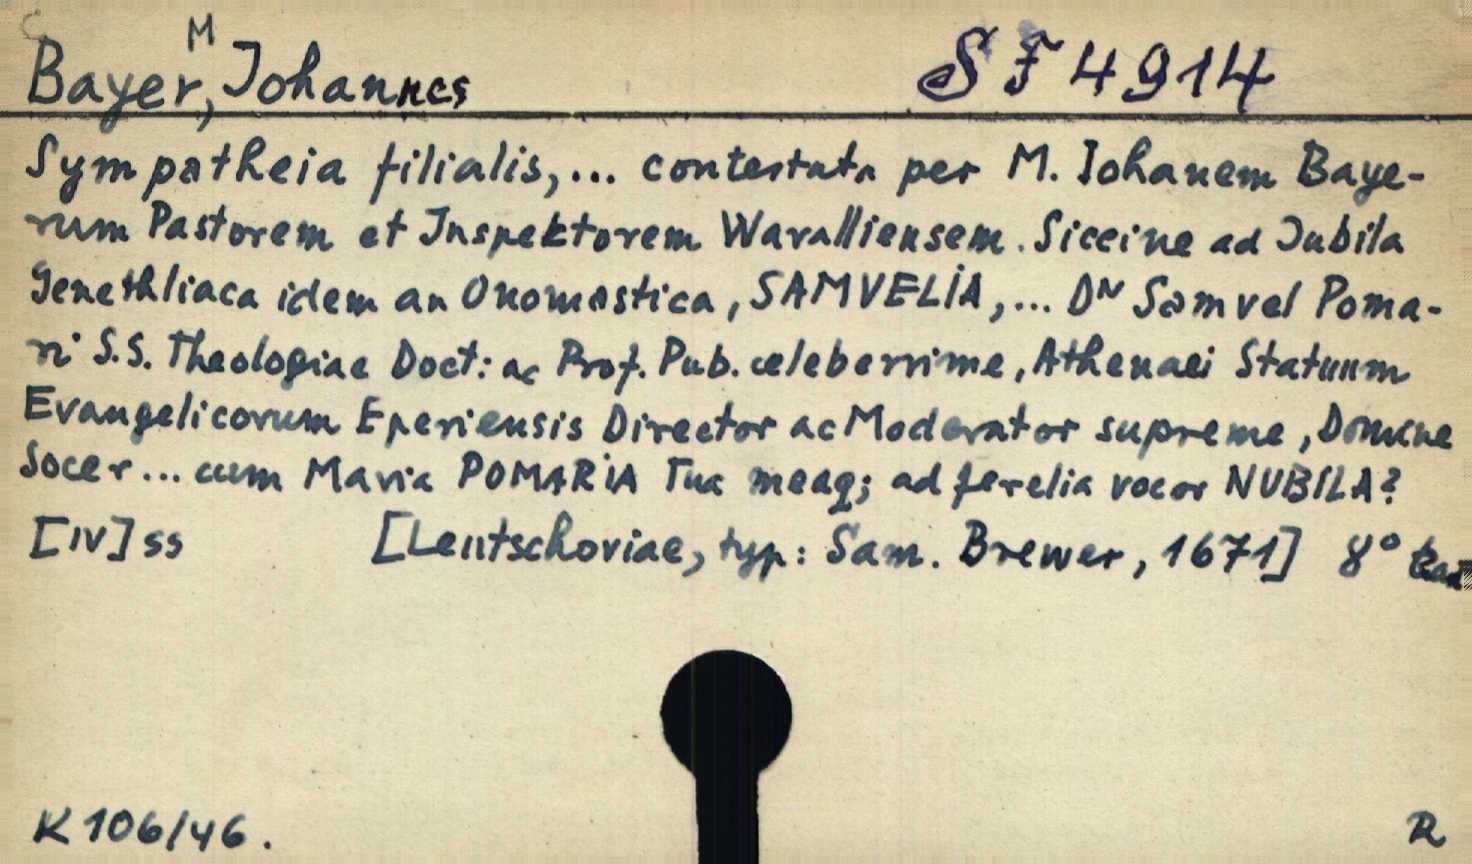 M
Bayer, Johannes SF 4914
Sympatheia filialis,... contestata per M. Iohanem Baye-
rum Pastorem et Inspektorem Waralliensem. Siccine ad Jubila
Genethliaca idem an Onomastica, SAMVELIA,... DN Samvel Poma-
ri S.S. Theologiae Doct: ac Prof. Pub. celeberrime, Athenaei Statuum
Evangelicorum Eperiensis Director ac Moderator supreme, Domine
Socer... cum Maria POMARIA Tua meaq; ad ferelia vocor NUBILA?
[IV] ss [Leutschoviae, typ: Sam. Brewer, 1671] 8°
K 106/46. R